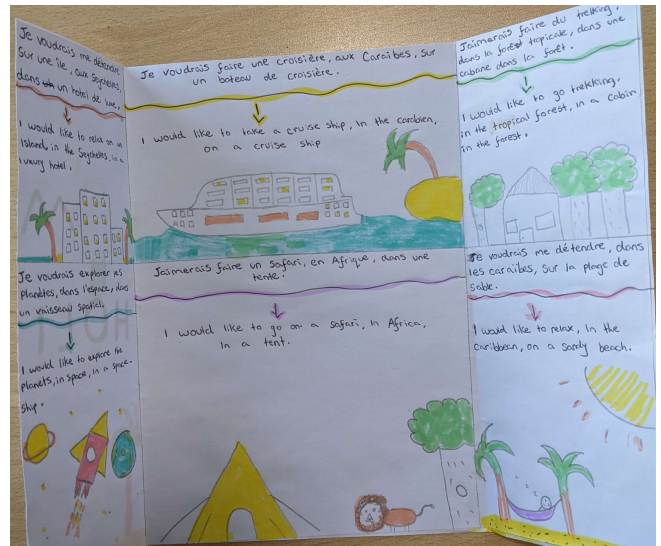 Je voudrais me détendre
Sur une île, aux Seychelles,
dans un hotel de luxe.
I would like to relax on an
Island, in the Seychelles, in a
luxury hotel.
Je voudrais faire une croisière, aux Caraibes, sur
un bateau de croisière.
I would like to take a cruise ship, In the carabien,
on a cruise ship
J'aimerais faire du trekking,
dans la foret tropicale, dans une
cabane dans la forêt.
I would like to go trekking,
in the tropical forest, in a cabin
in the forest.
Je voudrais explorer les
planètes, dans l'espace, dans
un vaisseau spatiel.
I would like to explore the
planets, in space, in a space-
ship.
Jaimerais faire un safari, en Afrique, dans une
tente.
I would like to go on a safari, In Africa,
In a tent.
Je voudrais me détendre, dans
les caraibes, sur la plage de
sable.
I would like to relax, In the
Caribbean, on a sandy beach.